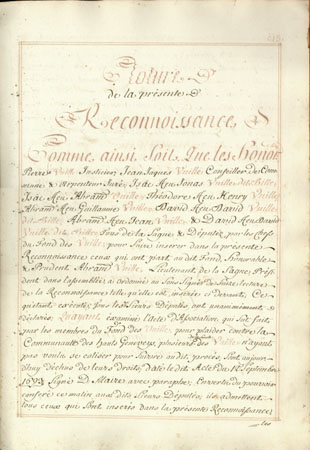 Cloture
de la presente
Reconnoissance,
Comme ainsi Soit Que les Honor.
Pierre Vuille Justicier, Jean Jaques Vuille Conseiller de Com=
mune & Arpenteur Juré, Isac Meu Jonas Vuille dit Bille,
Isac Meu Abram Vuille, Théodore Meu Henry Vuille,
Abram Meu Guillaume Vuille, David Meu David Vuille
Abram Meu Jean Vuille, & David Meu David
Vuille tous de la Sagne, & Députez par les
du Fond des Vuille, pour faire inserer dans la presente
Reconnoissance ceux qui ont part audit Fond, Honorable
& Prudent Abram Vuille Lieutenant de la Sagne, Prési=
dent dans l'assemblée, a ordonné au Sous Signé de faire lecture
de la Reconnoissance telle qu'elle est inserée ci devant. Ce
qu'étant executé, Tous les Sieurs Députez ont unanimement
déclarés, qu'ayant examiné l'acte d'Association, qui fut fait
par les membres du Fond des Vuille, pour plaider contre la
Communauté des hauts Geneveys, plusieurs des Vuille n'ayant
pas voulu se cotiser pour Subvenir audit procés, sont aujour=
d'huy déclus de leurs droits, daté ledit Acte du 12e Septembre
1693 Signé D. Maire avec paraphe; En vertu du pouvoir
conferé ce matin aux dits Sieurs Députez, ils admettent
tous ceux qui Sont inserés dans la présente Reconnoissance;
les